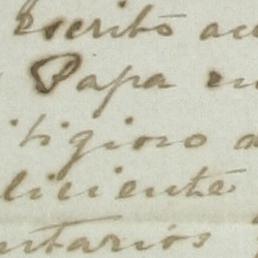 escrito
Papa en
itigioso
liciente
ntarios